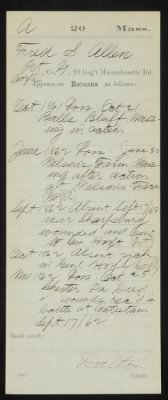 A 20 Mass.
Fred S Allen
Pvt, Co. G, 20 Reg't Massachusetts Inf.
Appears on Returns as follows:
Oct 1861 Pvt Oct 21
Balls Bluff Miss-
ing in action
June 1862 Pvt June 30
Nelsons Farm Miss
ing after action
at Nelsons Farm
Sept 1862 Absent Sept 17/62
near Sharpsburg
wounded and sent
to Gen Hosp
Oct 1862 Absent sick
in Gen'l Hosp
Nov 1862 Pvt Oct
Chester Pa Died
of wounds rec'd in
battle at Antietam
Sept 17/62
Book mark:
Dalton
Copyist.